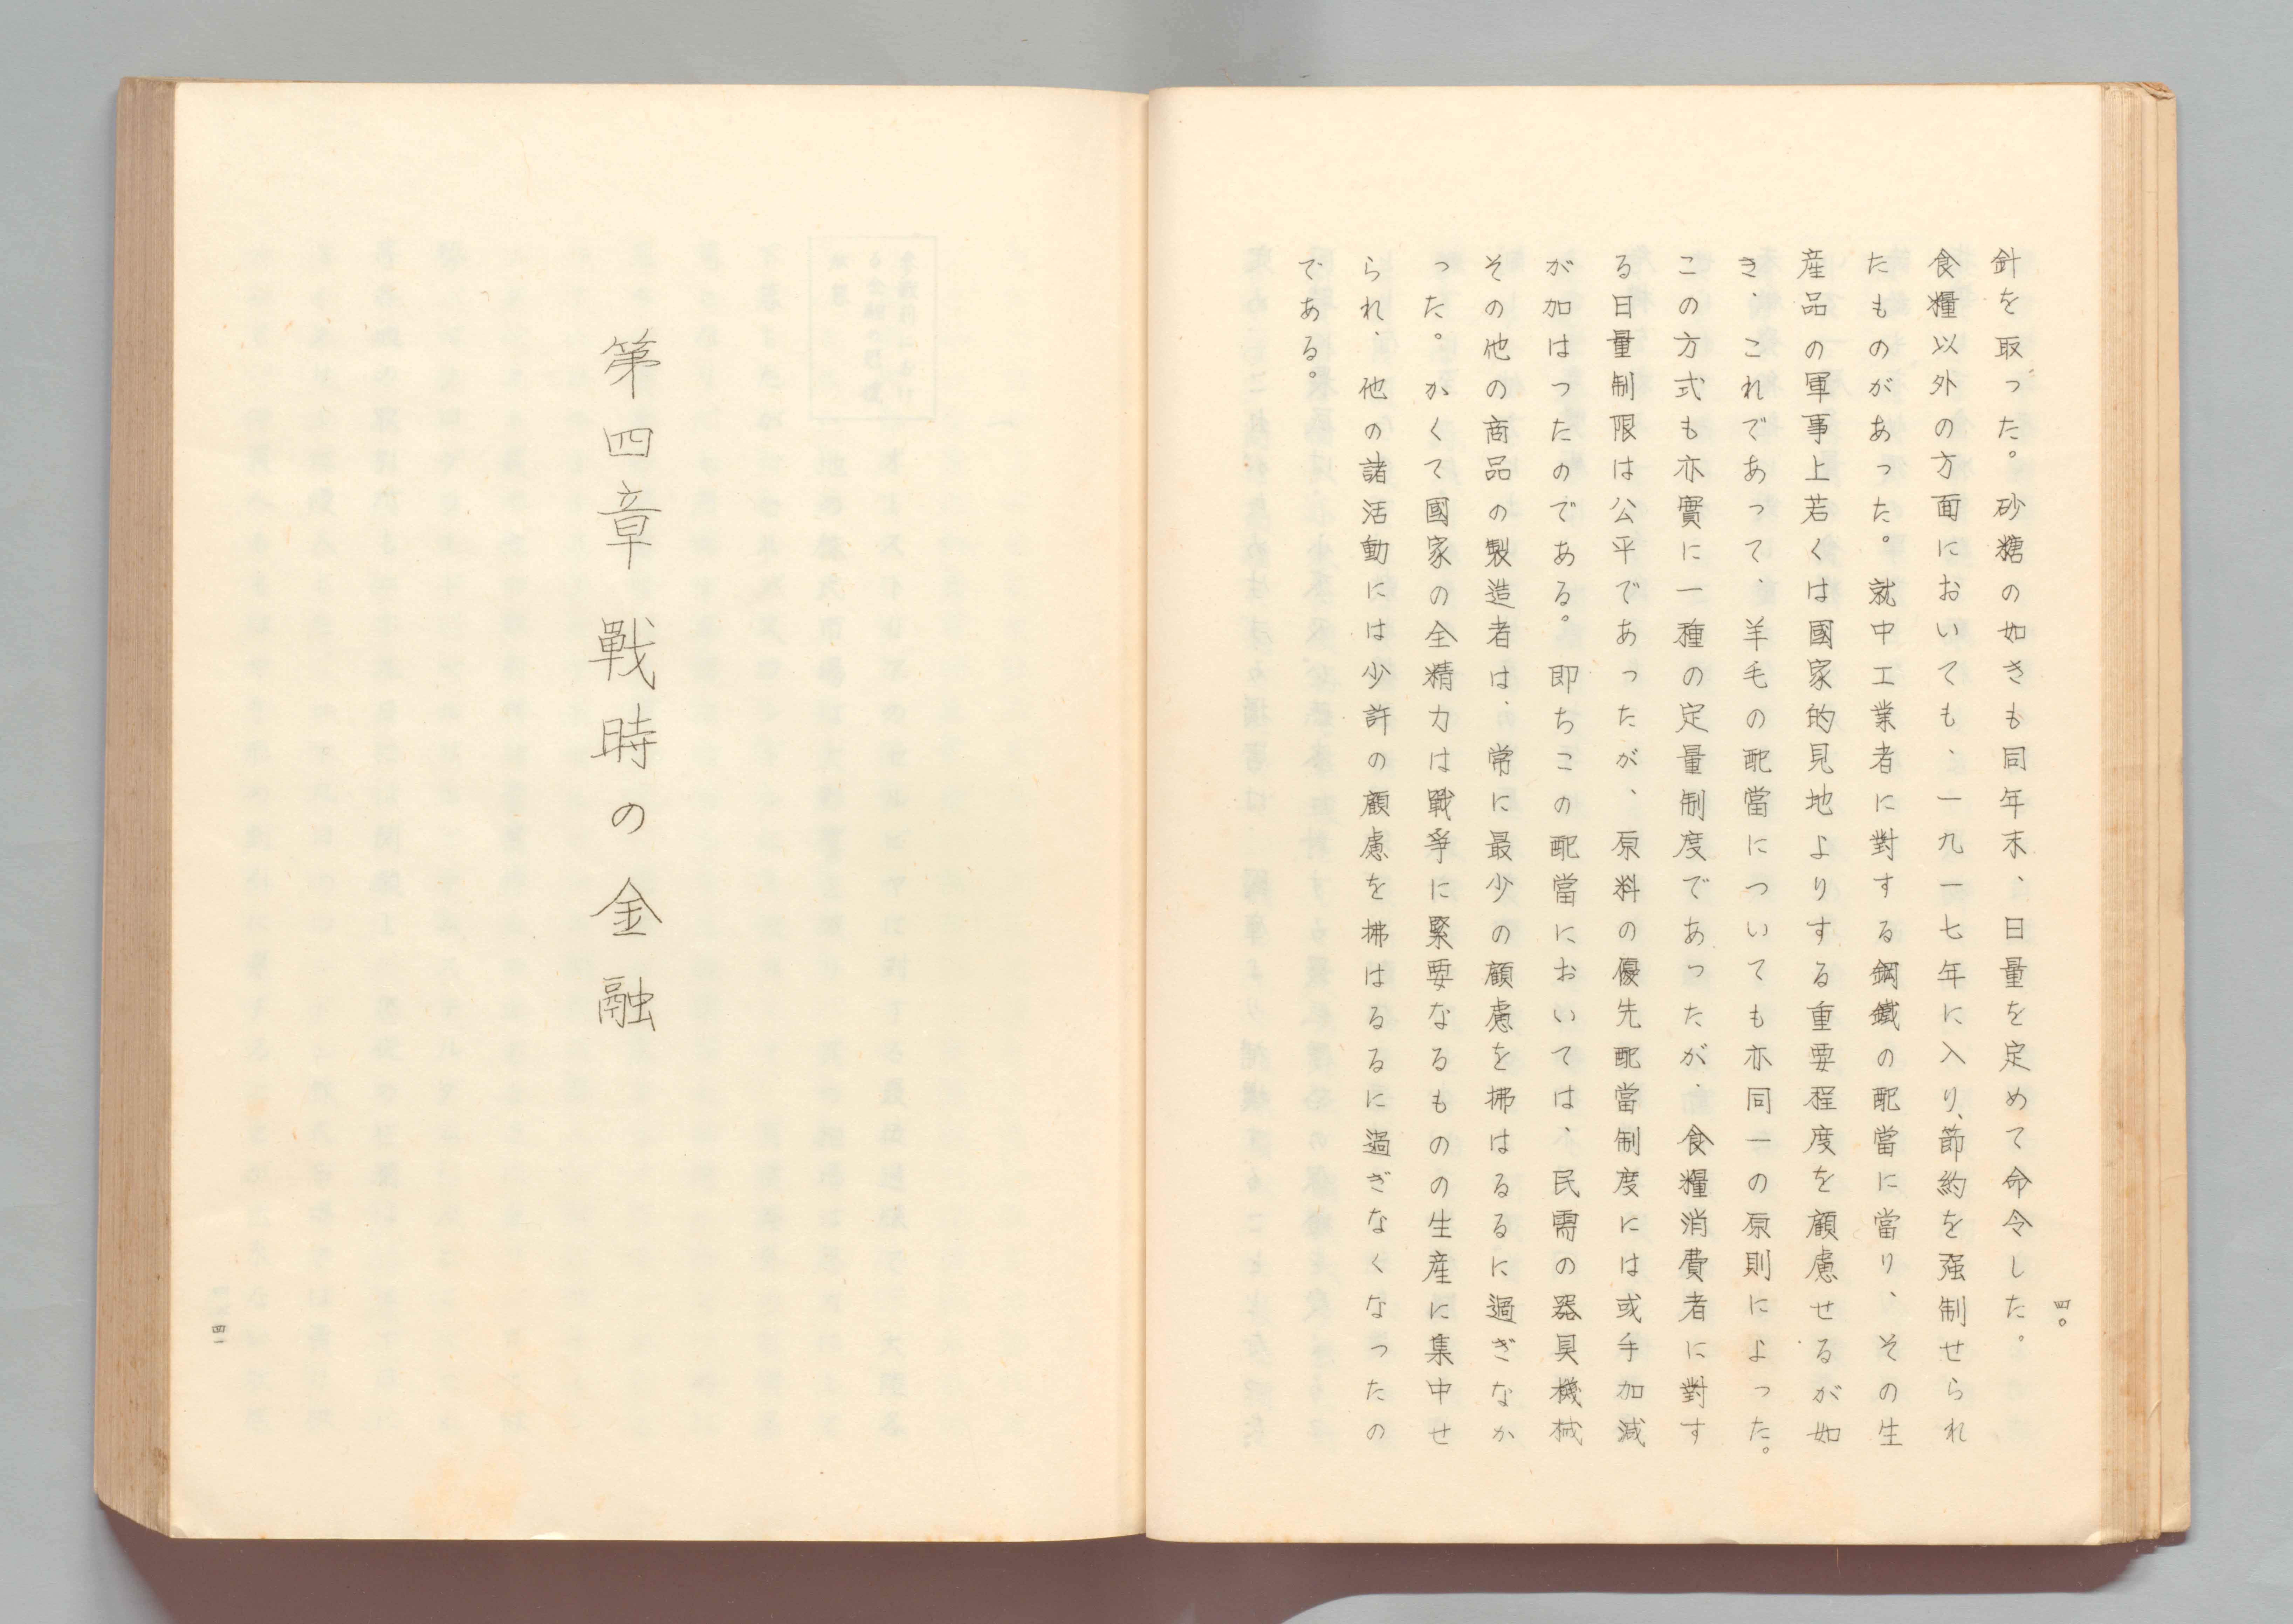 針を取った。砂糖の如きも同年末、日量を定めて命令した。
食糧以外の方面においても、一九一七年に入り、節約を强制せられ
たものがあった。就中工業者に對する鋼鐵の配當に當り、その生
産品の軍事上若くは國家的見地よりする重要程度を顧慮せるが如
き、これであって、羊毛の配當についても亦同一の原則によった。
この方式も亦實に一種の定量制度であったが、食糧消費者に對す
る日量制限は公平であったが、原料の優先配當制度には或手加減
が加はつたのである。即ちこの配當においては、民需の器具機械
その他の商品の製造者は、常に最少の顧慮を拂はるるに過ぎなか
った。かくて國家の全精力は戰爭に緊要なるものの生産に集中せ
られ、他の諸活動には少許の顧慮を拂はるるに過ぎなくなったの
である。
四〇
第四章 戰時の金融
四一